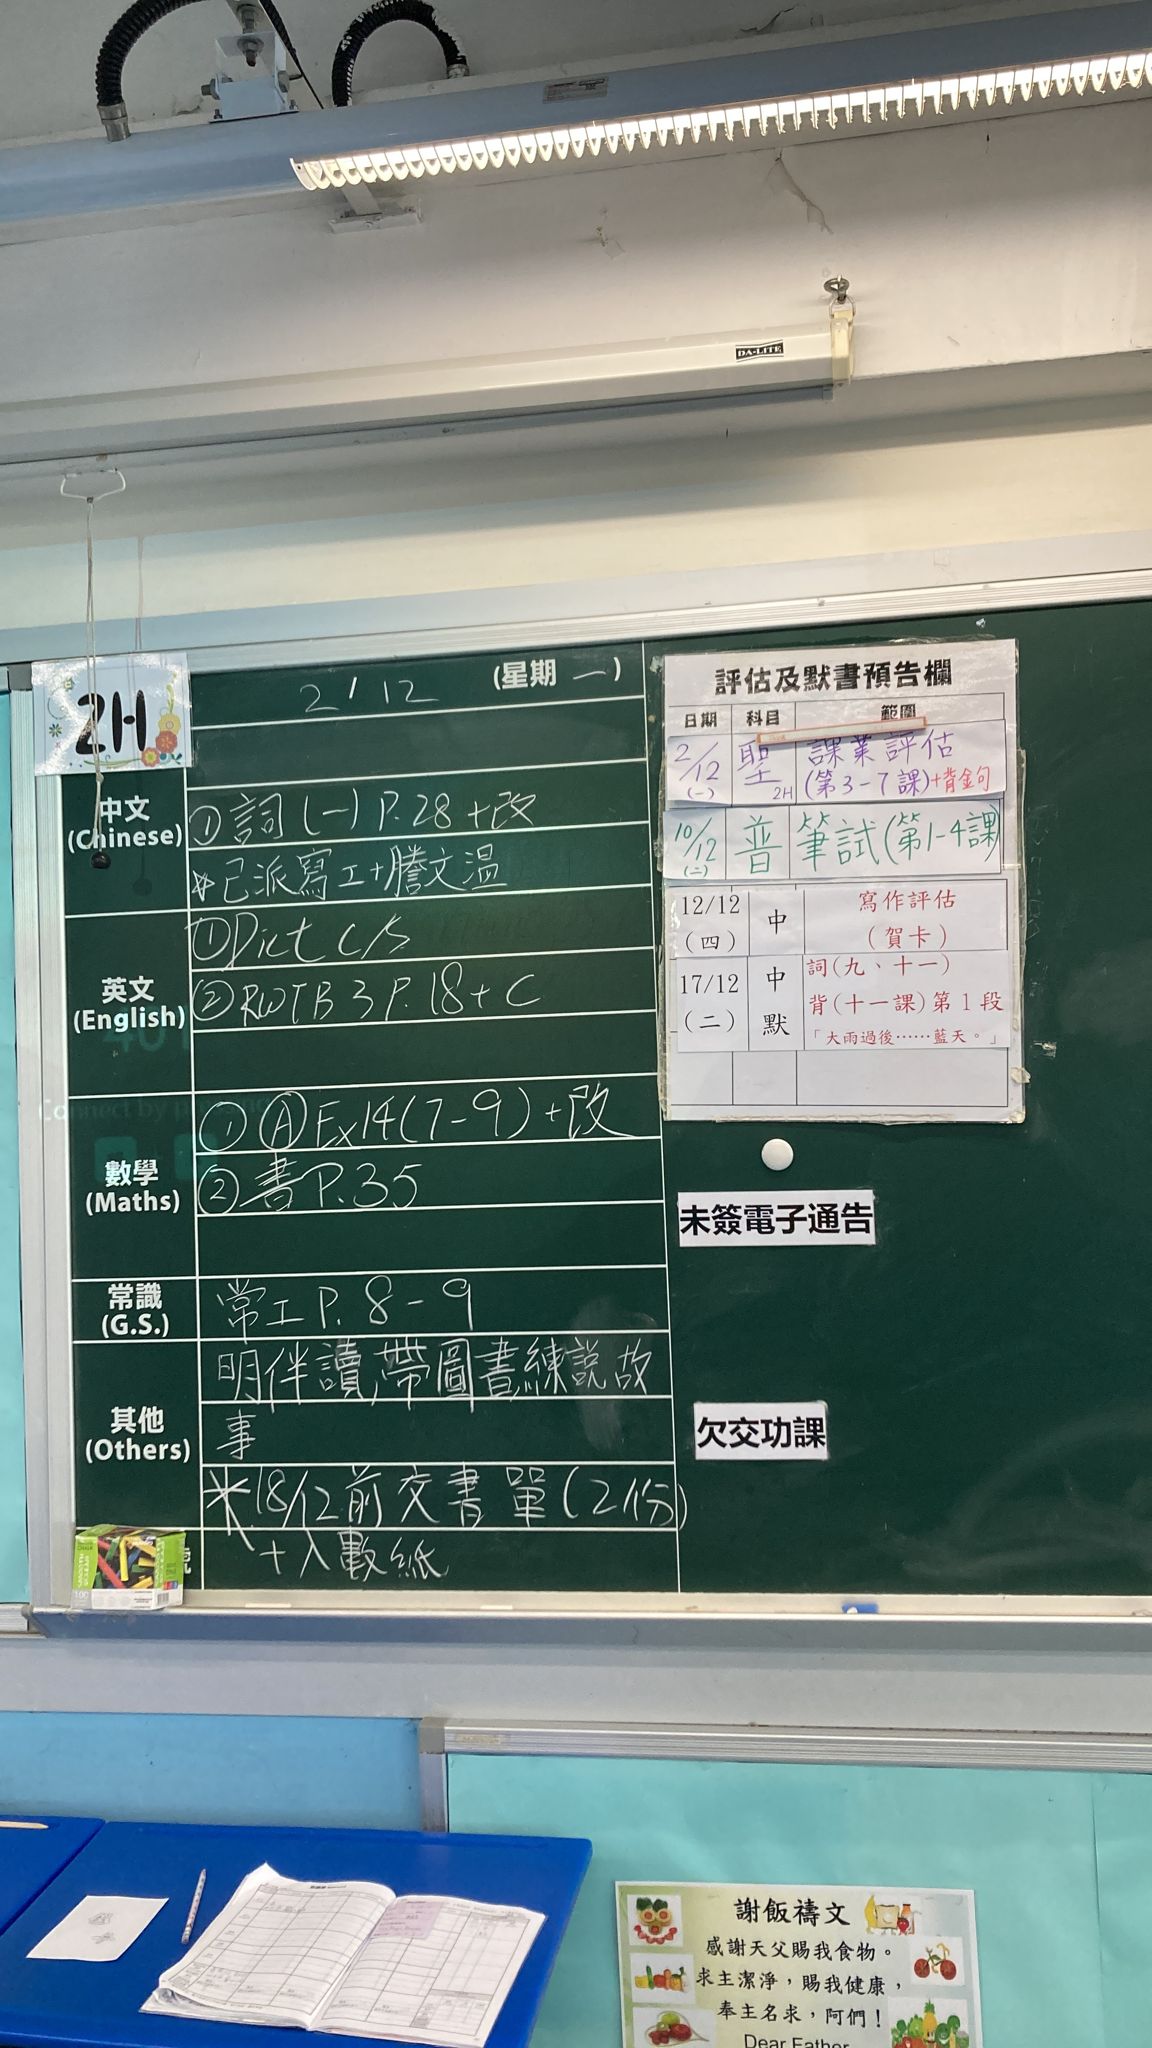 DA-LITE
2H
2/12
(星期 一)
中文
(Chinese)
①詞(一)P.28+改
*已派寫工+謄文溫
英文
(English)
①Dict C/S
②RWTB3 P.18+C
數學
(Maths)
①Ⓐ Ex14(7-9)+改
②書P.35
常識
(G.S.)
常工P.8-9
其他
(Others)
明伴讀,帶圖書練說故
事
*18/12前交書單(2份)
+入數紙
評估及默書預告欄
日期 科目 範圍
2/12 (一) 聖 2H 課業評估
(第3-7課)+背金句
10/12 (二) 普 筆試(第1-4課)
12/12 (四) 中 寫作評估
(賀卡)
17/12 (二) 中默 詞(九、十一)
背(十一課)第1段
「大雨過後……藍天。」
未簽電子通告
欠交功課
謝飯禱文
感謝天父賜我食物。
求主潔淨，賜我健康，
奉主名求，阿們！
Dear Father